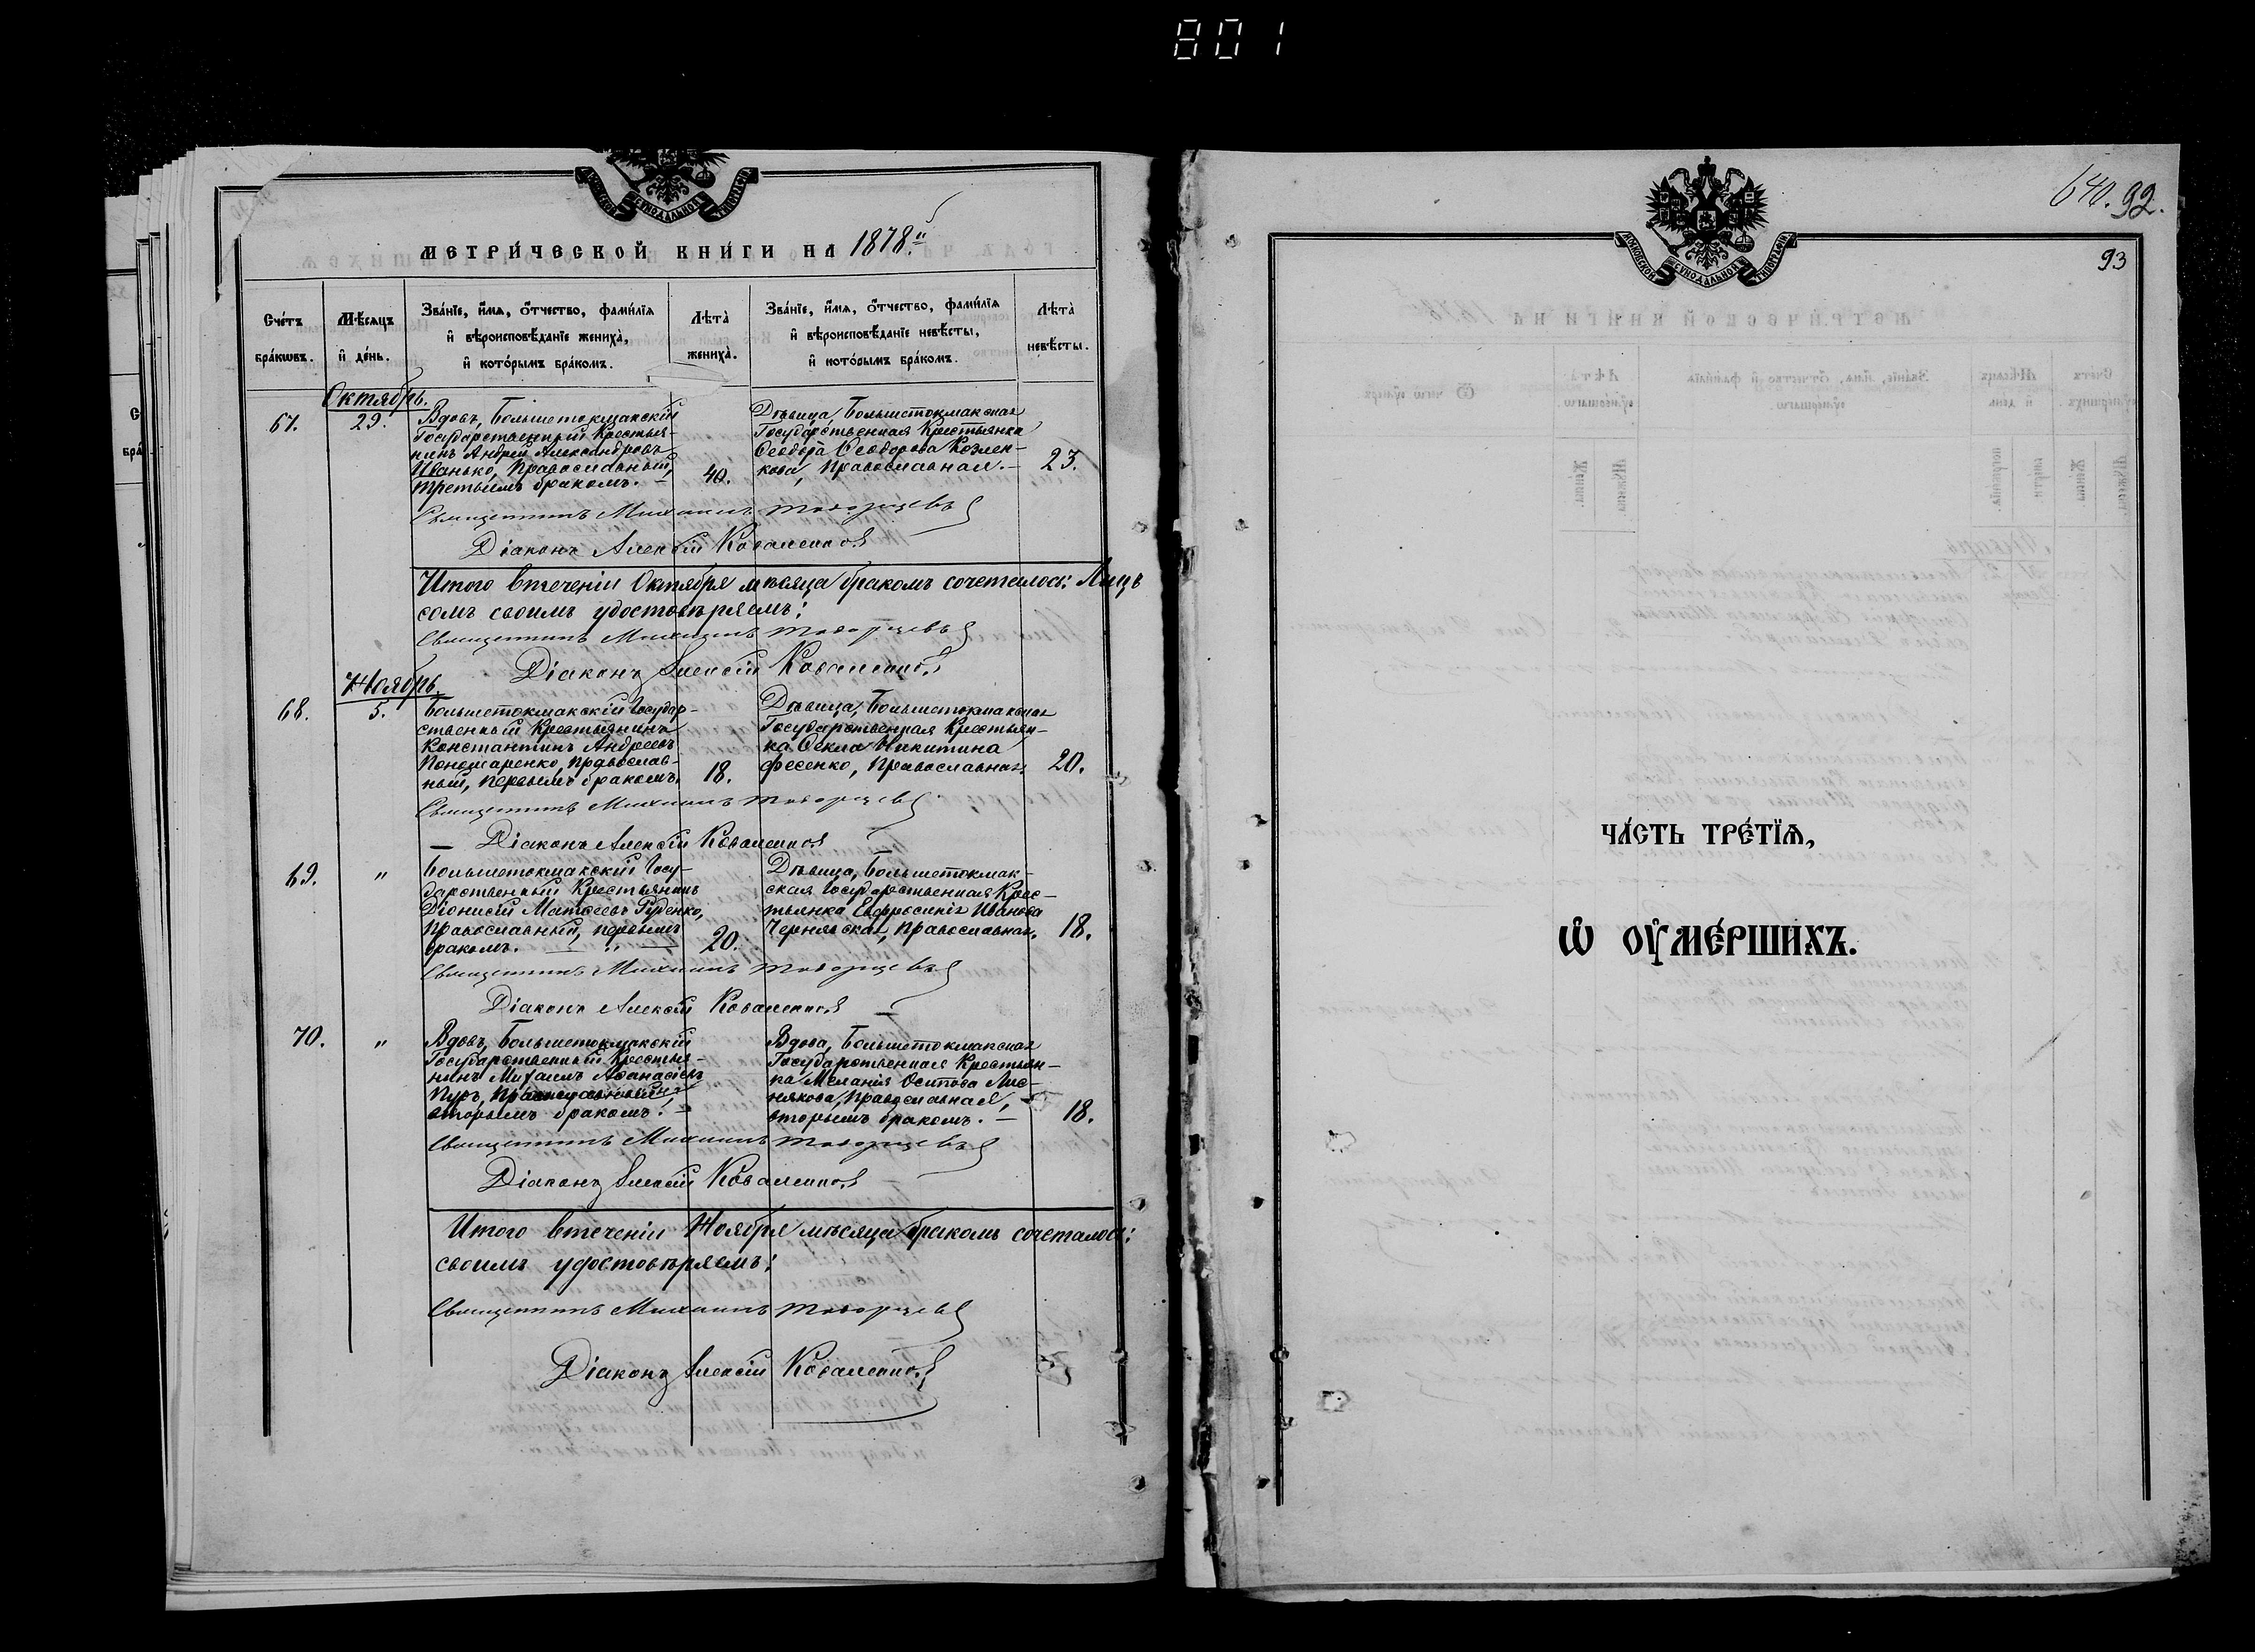 801
МОСКОВСКОЙ СѴНОДАЛЬНОЙ ТИПОГРАФІИ
МЕТРИ́ЧЕСКОЙ КНИ́ГИ НА 1878.
Сче́тъ бра́кѡвъ.
Мѣ́сяцъ и де́нь.
Зва́нїе, и́мѧ, ѻ́тчество, фами́лїѧ
и вѣроисповѣ́данїе жениха̀,
и кото́рымъ бра́комъ.
Лѣта̀ жениха̀.
Зва́нїе, и́мѧ, ѻ́тчество, фами́лїѧ
и вѣроисповѣ́данїе невѣ́сты,
и кото́рымъ бра́комъ.
Лѣта̀ невѣ́сты.
Октябрь.
67.
29.
Вдовъ, Большетокмакскій
Государственный Крестья-
нинъ Андрей Александровъ
Иванько, Православный,
третьимъ бракомъ. —
40.
Дѣвица, Большетокмакская
Государственная Крестьянка
Ѳеодора Ѳеодорова Козлен-
кова, Православная. —
23.
Священникъ Михаилъ
Діаконъ Алексій Коваленков
Итого втеченіи Октября мѣсяца бракомъ сочеталось: Лицъ
сомъ своимъ удостовѣряемъ:
Священникъ Михаилъ
Діаконъ Алексій Коваленков
Ноябрь.
68.
5.
Большетокмакскій Государ-
ственный Крестьянинъ
Константинъ Андреевъ
Пономаренко, Православ-
ный, первымъ бракомъ.
18.
Дѣвица, Большетокмакская
Государственная Крестьян-
ка Ѳекла Никитина
Фесенко, Православная.
20.
Священникъ Михаилъ
— Діаконъ Алексій Коваленков
69.
"
Большетокмакскій Госу-
дарственный Крестьянинъ
Діонисій Матѳеевъ Руденко,
Православный, первымъ
бракомъ. — " —
20.
Дѣвица, Большетокмак-
ская Государственная Крес-
тьянка Евфросинія Иванова
Чернявская, Православная.
18.
Священникъ Михаилъ
Діаконъ Алексій Коваленков —
70.
"
Вдовъ, Большетокмакскій
Государственный Крестья-
нинъ Михаилъ Аѳанасіевъ
Пуръ, Православный,
вторымъ бракомъ. —
Вдова, Большетокмакская
Государственная Крестьян-
ка Меланія Осипова Лис-
някова, Православная,
вторымъ бракомъ. —
18.
Священникъ Михаилъ
Діаконъ Алексій Коваленков
Итого втеченіи Ноября мѣсяца бракомъ сочеталось:
своимъ удостовѣряемъ:
Священникъ Михаилъ
Діаконъ Алексій Коваленков
640. 92.
МОСКОВСКОЙ СѴНОДАЛЬНОЙ ТИПОГРАФІИ
93
ЧА́СТЬ ТРЕ́ТЇѦ,
Ѡ ОУМЕ́РШИХЪ.